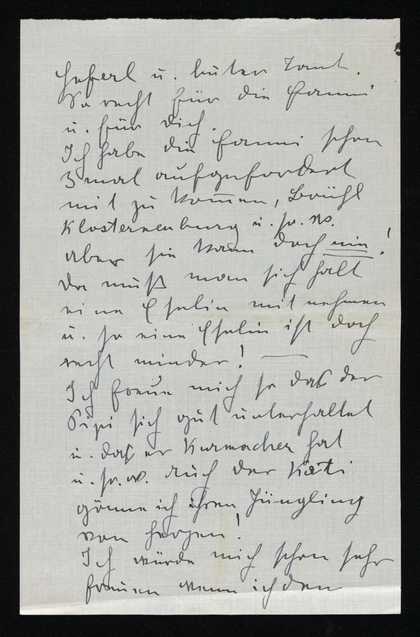 u. guter Tont.
So recht für die Fanni
u. für dich.
Ich habe die Fanni schon
3 mal aufgefordert
mit zu kommen, Brühl
Klosterneuburg u. so w.
aber sie kann doch nie!
da muß man sich halt
eine Eselin mitnehmen
u. so eine Eselin ist doch
recht minder! —
Ich freue mich so daß der
Pipi sich gut unterhaltet
u. daß er Kurmacher hat
u. s. w. auch der Kati
gönne ich ihren Jüngling
von herzen!
Ich würde mich schon sehr
freuen wenn ich den